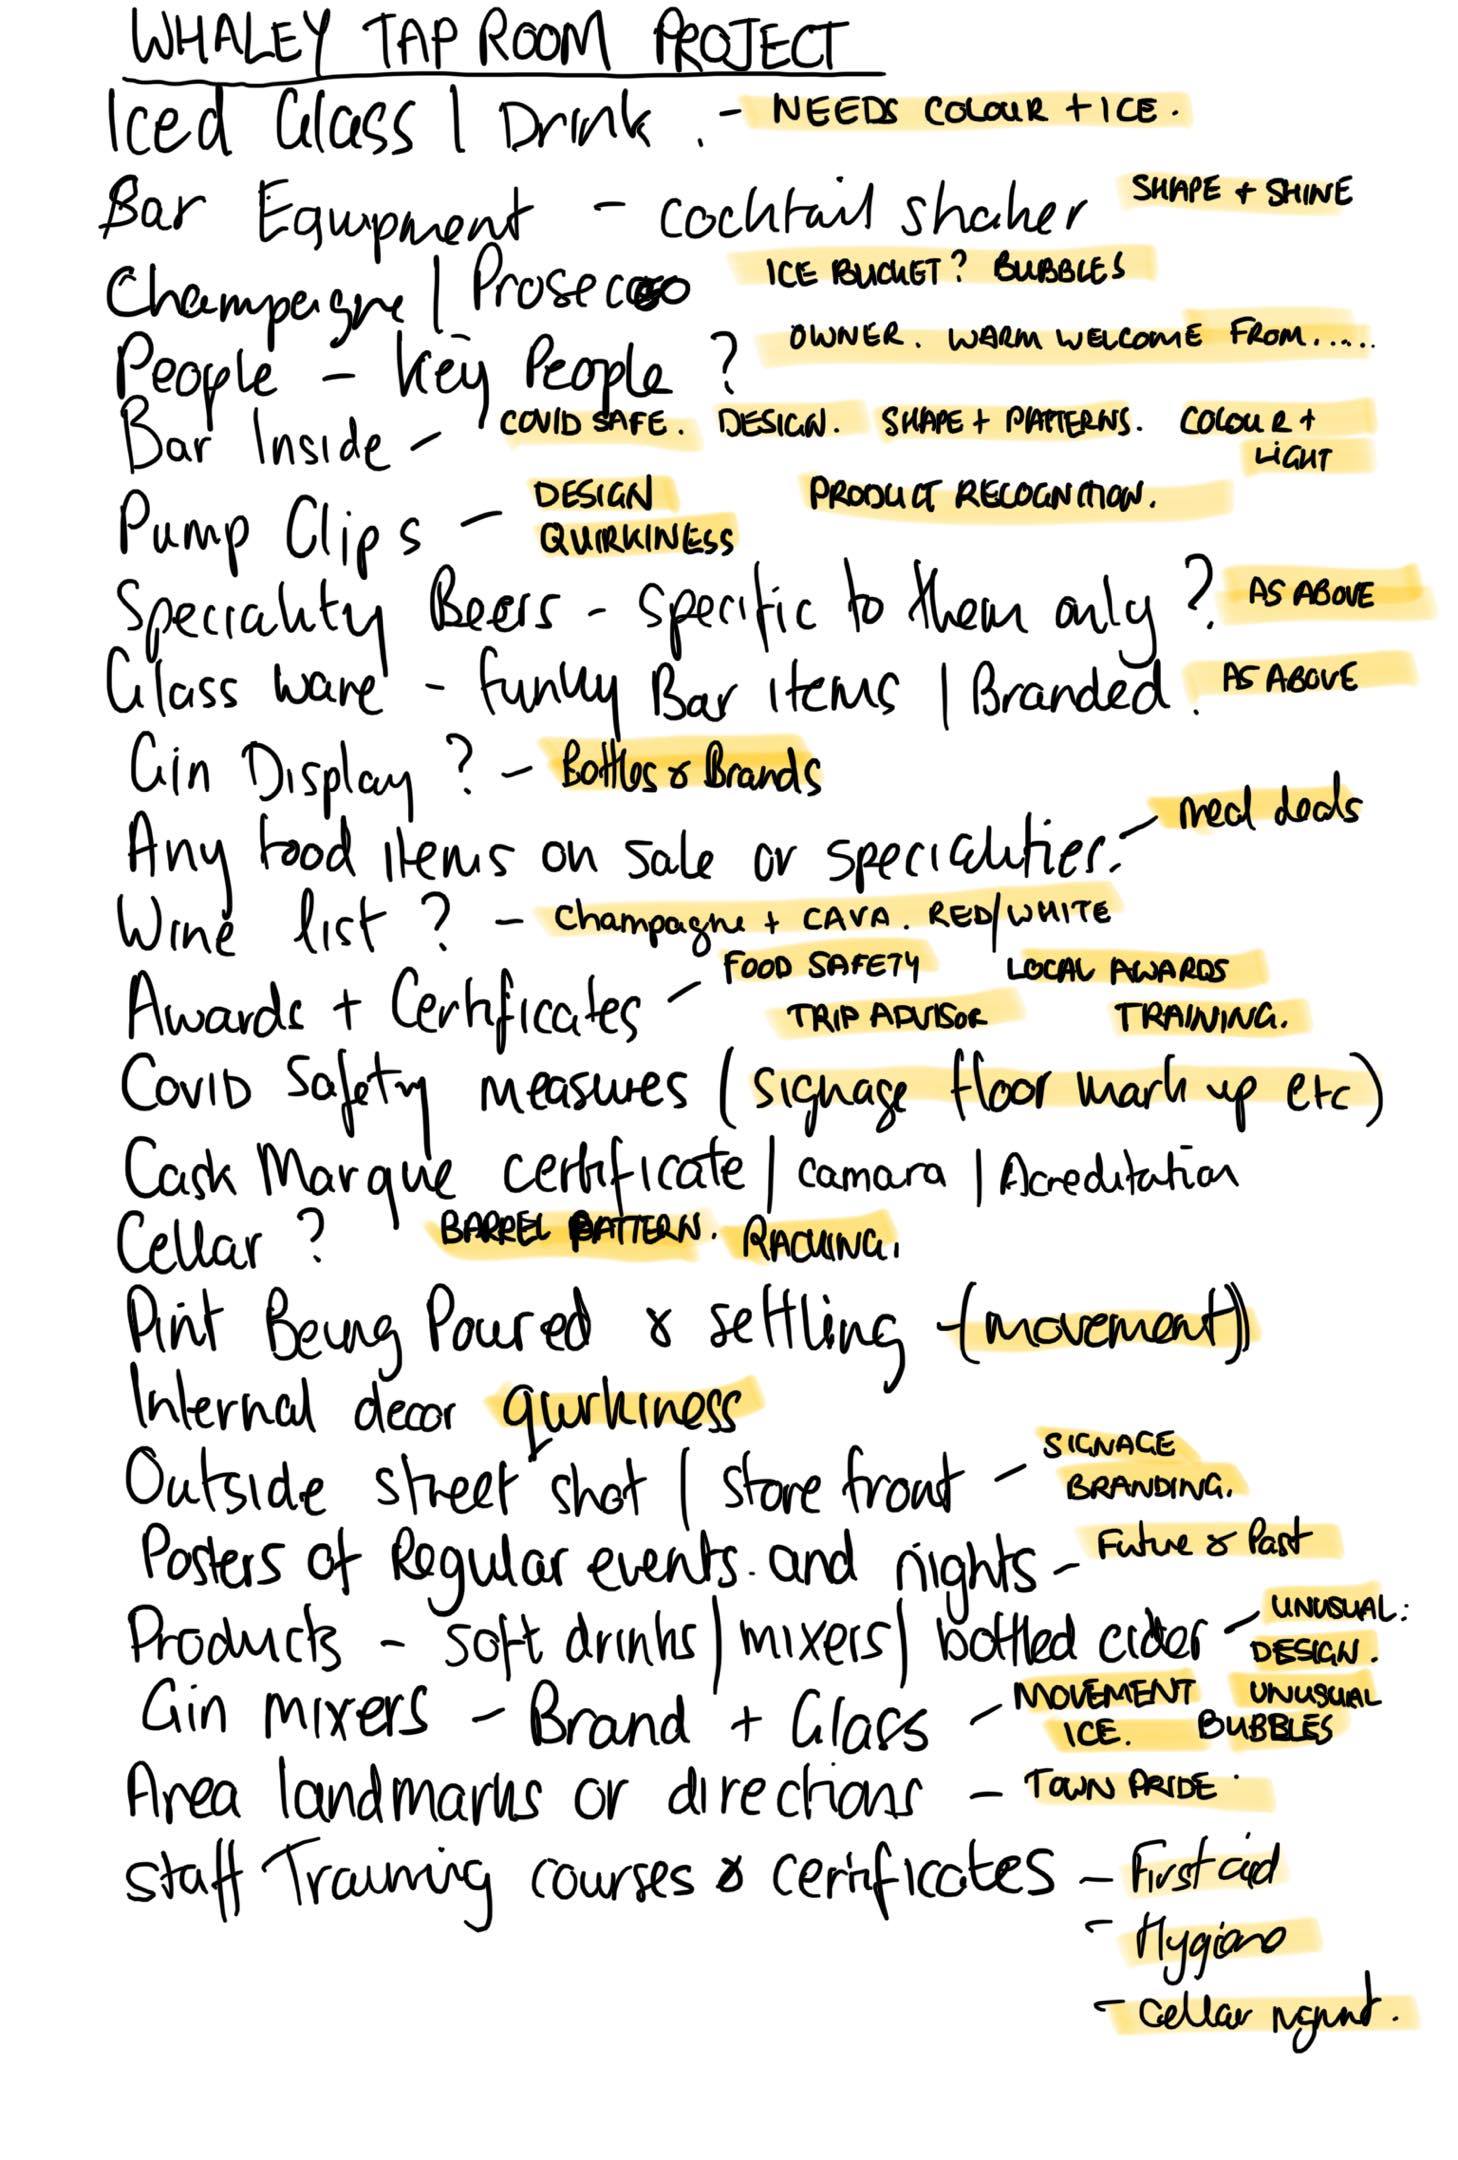 WHALEY TAP ROOM PROJECT
Iced Glass | Drink . - NEEDS COLOUR + ICE.
Bar Equipment - cocktail shaker SHAPE + SHINE
Champaigne | Prosecco ICE BUCKET? BUBBLES
People - Key People ? OWNER. WARM WELCOME FROM.....
Bar Inside - COVID SAFE. DESIGN. SHAPE + PATTERNS. COLOUR +
LIGHT
Pump Clips - DESIGN PRODUCT RECOGNITION.
QUIRKINESS
Speciality Beers - specific to them only ? AS ABOVE
Glass ware - funky Bar items | Branded. AS ABOVE
Gin Display ? - Bottles & Brands
Any food items on sale or specialities. - meal deals
Wine list ? - Champagne + CAVA. RED/WHITE
Awards + Certificates - FOOD SAFETY LOCAL AWARDS
TRIP ADVISOR TRAINING.
Covid Safety measures (signage floor mark up etc)
Cask Marque certificate | camara | Acreditation
Cellar ? BARREL PATTERN. RACKING.
Pint Being Poured & settling - (movement)
Internal decor quirkiness
Outside street shot | store front - SIGNAGE
BRANDING.
Posters of Regular events. and nights - Future & Past
Products - soft drinks | mixers | bottled cider - UNUSUAL.
DESIGN.
Gin mixers - Brand + Glass - MOVEMENT UNUSUAL
ICE. BUBBLES
Area landmarks or directions - TOWN PRIDE.
Staff Training courses & certificates - First aid
- Hygiene
- Cellar mgmnt.